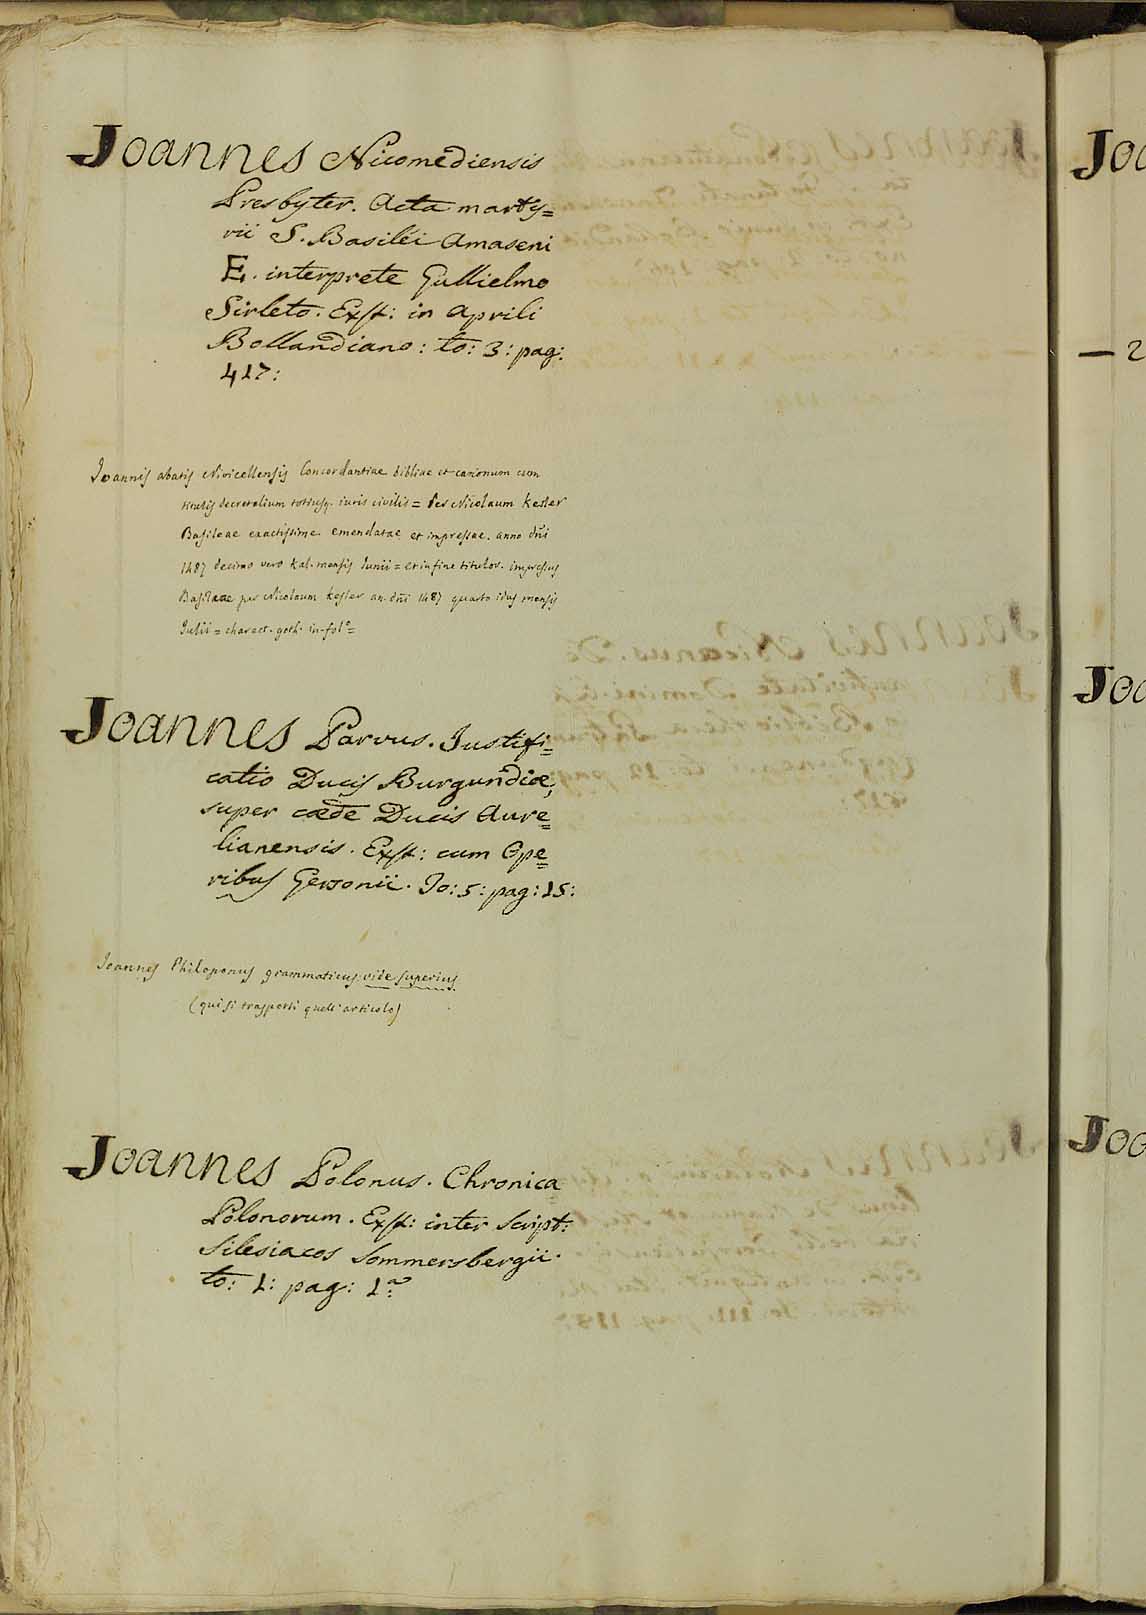 Joannes Nicomediensis
Presbyter. Acta marty=
rii S. Basilei Amaseni
E. interprete Gullielmo
Sirleto. Exst: in Aprili
Bollandiano: to: 3: pag:
417:
Joannis abatis Nivicellensis Concordantiae bibliae et canonum cum
titulis decretalium totiusq. iuris civilis = Per Nicolaum Kesler
Basileae exactissime emendatae et impressae. anno dñi
1487 decimo vero kal. mensis Iunii = et in fine titulor. impressus
Basileae per Nicolaum Kesler an. dñi 1487 quarto idus mensis
Julii = charact. goth. in-folº=
Joannes Parvus. Justifi=
catio Ducis Burgundiae,
super cæde Ducis Aure=
lianensis. Exst: cum Ope=
ribus Gersonii. To: 5: pag: 15:
Joannes Philoponus grammaticus vide superius
(qui si trasporti quell'articolo)
Joannes Polonus. Chronica
Polonorum. Exst: inter Script:
Silesiacos Sommersbergii.
to: 1: pag: 1ª
Joa
— 2
Joa
Joa